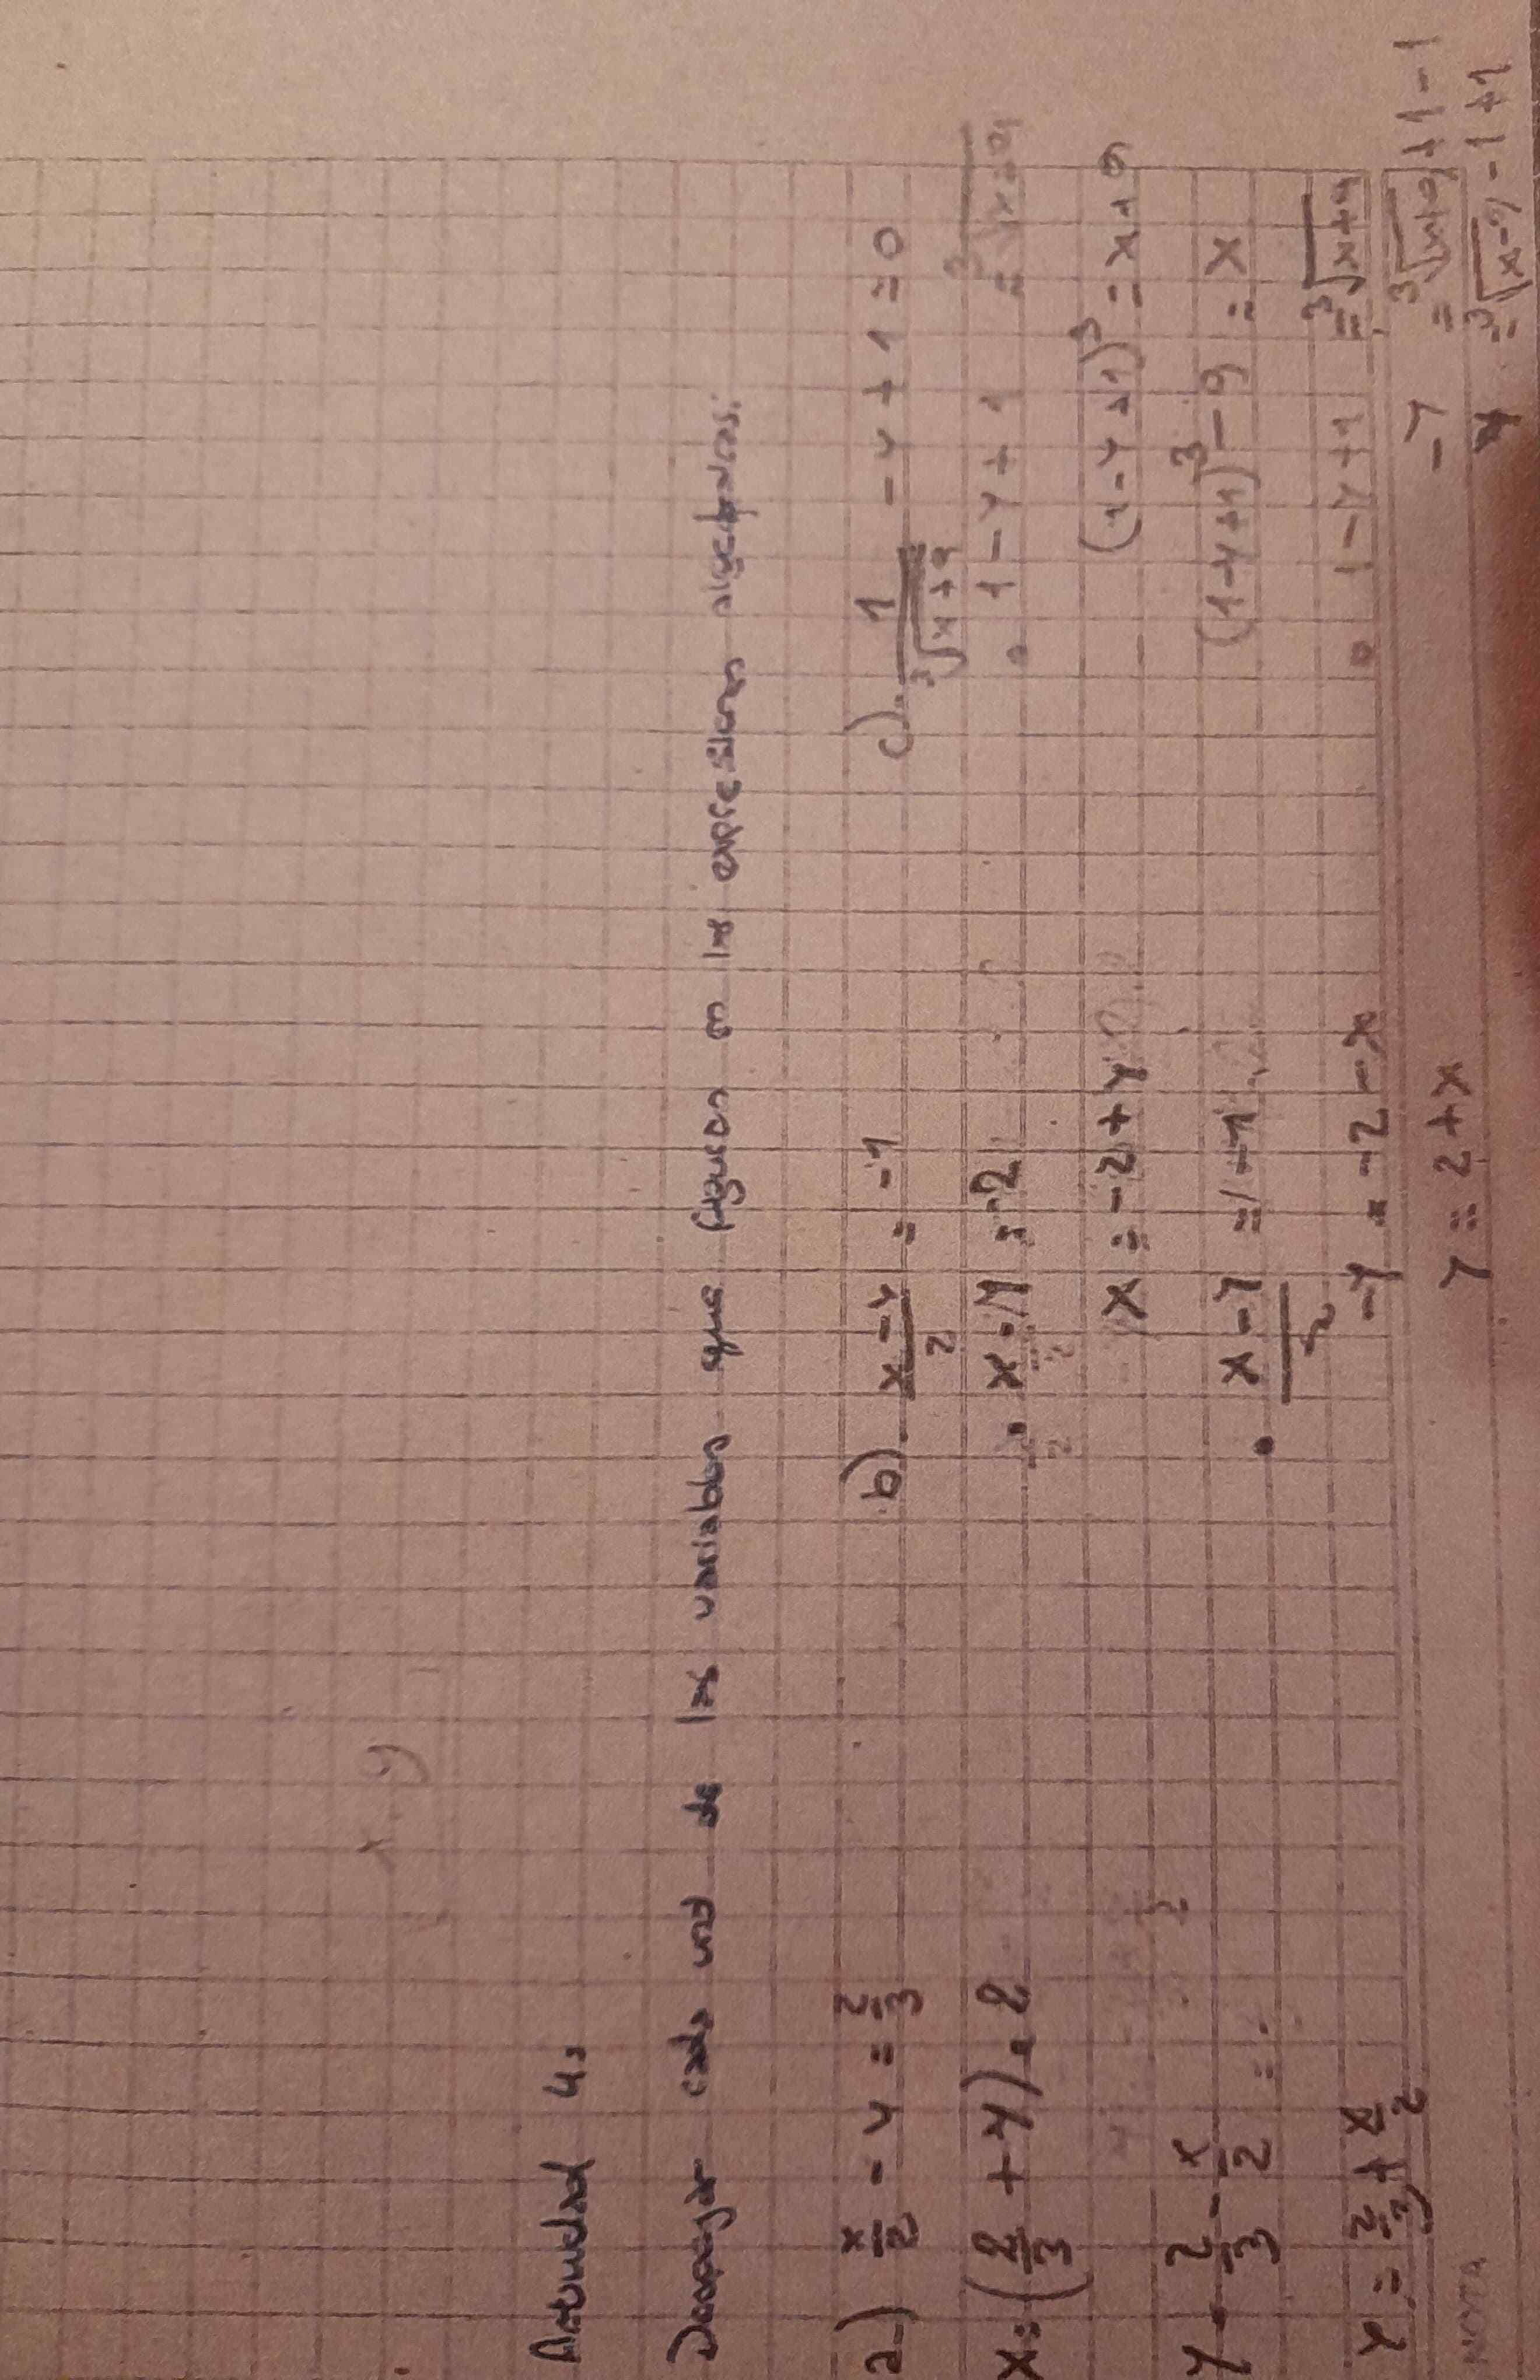 x y
Actividad 4:
Despejar cada una de las variables que figuran en las expresiones algebraicas:
a) x/2 - y = 2/3
x = (2/3 + y) . 2
y = 2/3 - x/2 =
y = 2/3 + x/2
NOTA
b) x - y / 2 = -1
. x - y = -2
x = -2 + y
. x - y / 2 = -1
-y = -2 - x
y = 2 + x
c) 1/∛x+9 - y + 1 = 0
. 1 - y + 1 = ∛x+9
(1 - y + 1)³ = x + 9
(1 - y + 1)³ - 9 = x
. 1 - y + 1 = ∛x+9
- y = ∛x+9 + 1 - 1
y = ∛x-9 - 1 + 1